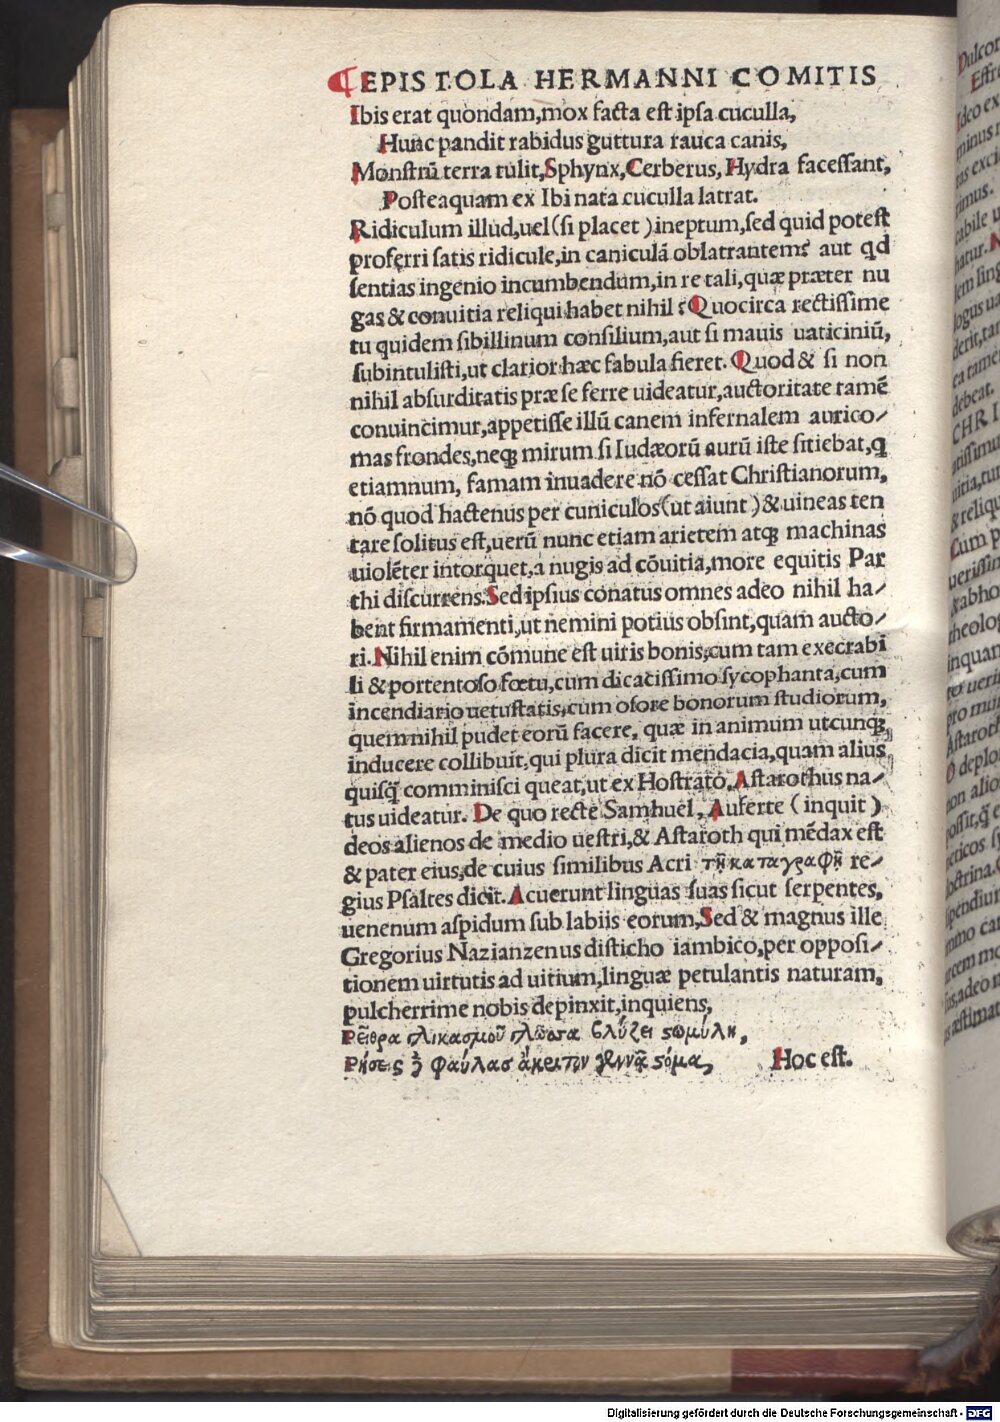 EPISTOLA HERMANNI COMITIS
Ibis erat quondam,mox facta est ipsa cuculla,
Hunc pandit rabidus guttura rauca canis,
Monstrũ terra tulit,Sphynx,Cerberus,Hydra facessant,
Posteaquam ex Ibi nata cuculla latrat.
Ridiculum illud,uel(si placet)ineptum,sed quid potest
proferri satis ridicule,in caniculã oblatrantem? aut qd
sentias ingenio incumbendum,in re tali,quæ præter nu
gas & conuitia reliqui habet nihil? Quocirca rectissime
tu quidem sibillinum consilium,aut si mauis uaticiniũ,
subintulisti,ut clarior hæc fabula fieret. Quod & si non
nihil absurditatis præ se ferre uideatur,auctoritate tamẽ
conuincimur,appetisse illũ canem infernalem aurico/
mas frondes,neqꝫ mirum si Iudæorũ aurũ iste sitiebat,q
etiamnum, famam inuadere nõ cessat Christianorum,
nõ quod hactenus per cuniculos(ut aiunt)& uineas ten
tare solitus est,uerũ nunc etiam arietem atqꝫ machinas
uiolẽter intorquet,a nugis ad cõuitia,more equitis Par
thi discurrens.Sed ipsius conatus omnes adeo nihil ha/
bent firmamenti,ut nemini potius obsint,quam aucto/
ri.Nihil enim cõmune est uiris bonis,cum tam execrabi
li & portentoso fœtu,cum dicacissimo sycophanta,cum
incendiario uetustatis,cum osore bonorum studiorum,
quem nihil pudet eorũ facere, quæ in animum utcunqꝫ
inducere collibuit,qui plura dicit mendacia,quam alius
quisq̃ comminisci queat,ut ex Hostrato,Astarothus na/
tus uideatur. De quo recte Samhuel, Auferte (inquit)
deos alienos de medio uestri,& Astaroth qui mẽdax est
& pater eius,de cuius similibus Acri τῆ καταγραφῆ re/
gius Psaltes dicit.Acuerunt linguas suas sicut serpentes,
uenenum aspidum sub labiis eorum,Sed & magnus ille
Gregorius Nazianzenus disticho iambico,per opposi/
tionem uirtutis ad uitium,linguæ petulantis naturam,
pulcherrime nobis depinxit,inquiens,
Ρεῖθρα γλώσσα βλύζει στωμύλη,
Ρήσεις φαύλας γεννᾷ στόμα, Hoc est.
Digitalisierung gefördert durch die Deutsche Forschungsgemeinschaft - DFG